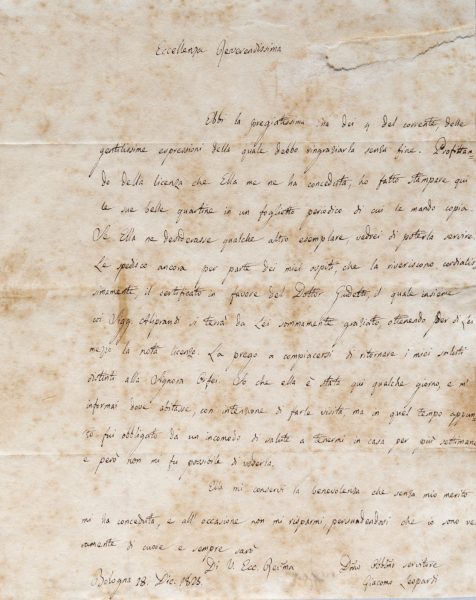 Eccellenza Reverendissima
Ebbi la pregiatissima sua dei 9 del corrente, delle
gentilissime espressioni della quale debbo ringraziarla senza fine. Profittan
do della licenza che Ella me ne ha conceduta, ho fatto stampare qui
le sue belle quartine in un foglietto periodico di cui le mando copia.
Se Ella ne desiderasse qualche altro esemplare, vedrei di poterla servire.
Le spedisco ancora per parte dei miei ospiti, che la riveriscono cordialis
simamente, il certificato in favore del Dottor Gudetti, il quale insieme
coi Sigg. Aliprandi si terrà da Lei sommamente graziato ottenendo, per di Lei
mezzo la nota licenza. La prego a compiacersi di ritornare i miei saluti
distinti alla Signora Orfei. So che ella è stata qui qualche giorno, e m'
informai dove abitava, con intenzione di farle visita ma in quel tempo appun
to fui obbligato da un incomodo di salute a tenermi in casa per più settimane
e però non mi fu possibile di vederla.
Ella mi conservi la benevolenza che senza mio merito
mi ha conceduta, e all'occasione non mi risparmi, persuadendosi che io sono ve
ramente di cuore e sempre sarò
Di V. Ecc. Revma
Dmo Obbmo servitore
Bologna 18. Dic. 1825.
Giacomo Leopardi